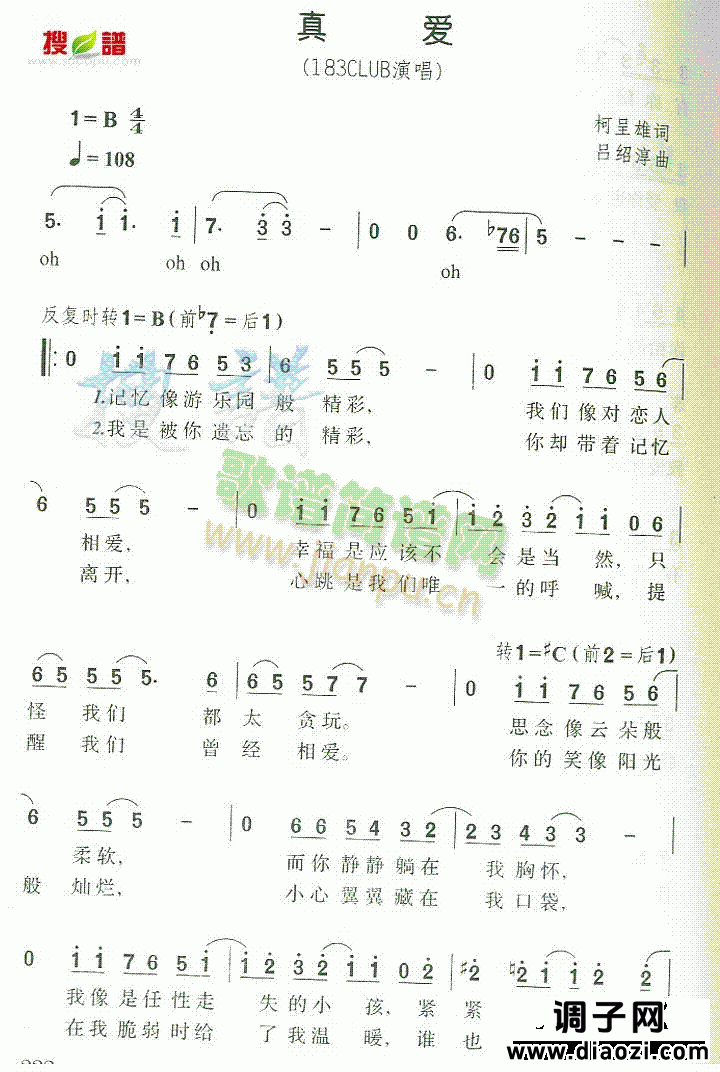 真 爱
搜 谱
www.socopu.com
(183CLUB演唱)
1=B 4/4
♩=108
柯呈雄词
吕绍淳曲
5. i i. i 7. 3 3 - 0 0 6. ♭76 5 - - -
oh oh oh oh
反复时转1=B(前♭7=后1)
0 i i 7 6 5 3 6 5 5 5 - 0 i i 7 6 5 6
1.记忆 像游 乐园 般 精彩, 我们 像对 恋人
2.我是 被你 遗忘 的 精彩, 你却 带着 记忆
搜 谱
歌谱简谱网
www.jianpu.cn
6 5 5 5 - 0 i i 7 6 5 i i 2 3 2 i i 0 6
相爱, 幸福 是应 该不 会是 当 然, 只
离开, 心跳 是我 们唯 一的 呼 喊, 提
转1=♯C(前2=后1)
6 5 5 5 5. 6 6 5 5 7 7 - 0 i i 7 6 5 6
怪 我们 都 太 贪玩。 思念 像云 朵般
醒 我们 曾 经 相爱。 你的 笑像 阳光
6 5 5 5 - 0 6 6 5 4 3 2 2 3 4 3 3 -
柔软, 而你 静静 躺在 我 胸怀,
般 灿烂, 小心 翼翼 藏在 我 口袋,
0 i i 7 6 5 i i 2 3 2 i i 0 2 ♯2 ♮2 i i 2
我像 是任 性走 失的 小 孩, 紧 紧
在我 脆弱 时给 了我 温 暖, 谁 也
调子网
www.diaozi.com